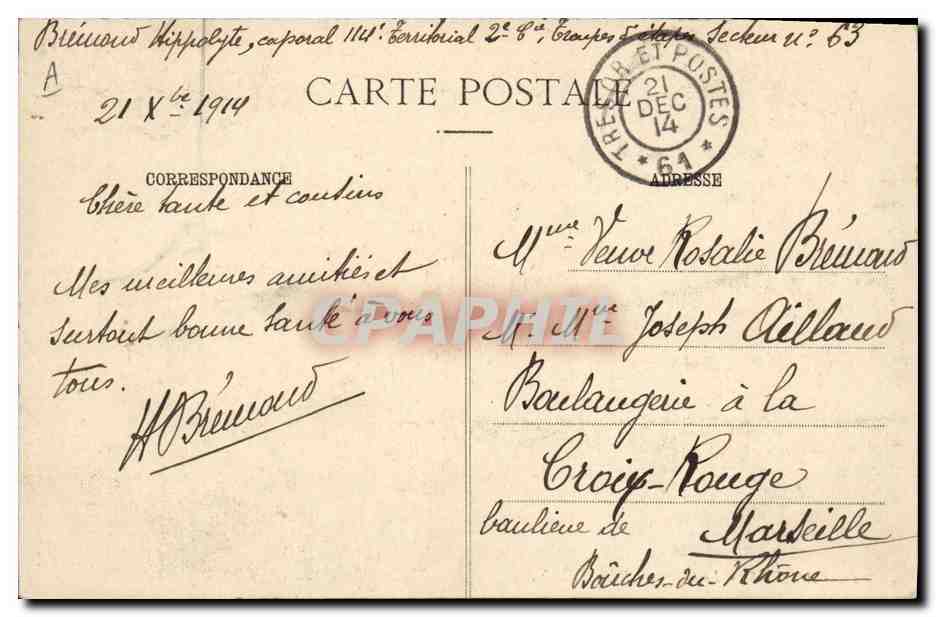 Brémond Hippolyte, caporal 114e Territorial 2e Cie, Troupes d'étapes Secteur no 63
A
21 Xbre 1914
CARTE POSTALE
TRESOR ET POSTES
21
DEC
14
* 61 *
CORRESPONDANCE
ADRESSE
Chère tante et cousins
Mes meilleures amitiés et
surtout bonne santé à vous
tous.
HBrémond
Mme Veuve Rosalie Brémond
Mr Mve Joseph Aillaud
Boulangerie à la
Croix-Rouge
banlieue de Marseille
Bouches-du-Rhône
CPAPHIL